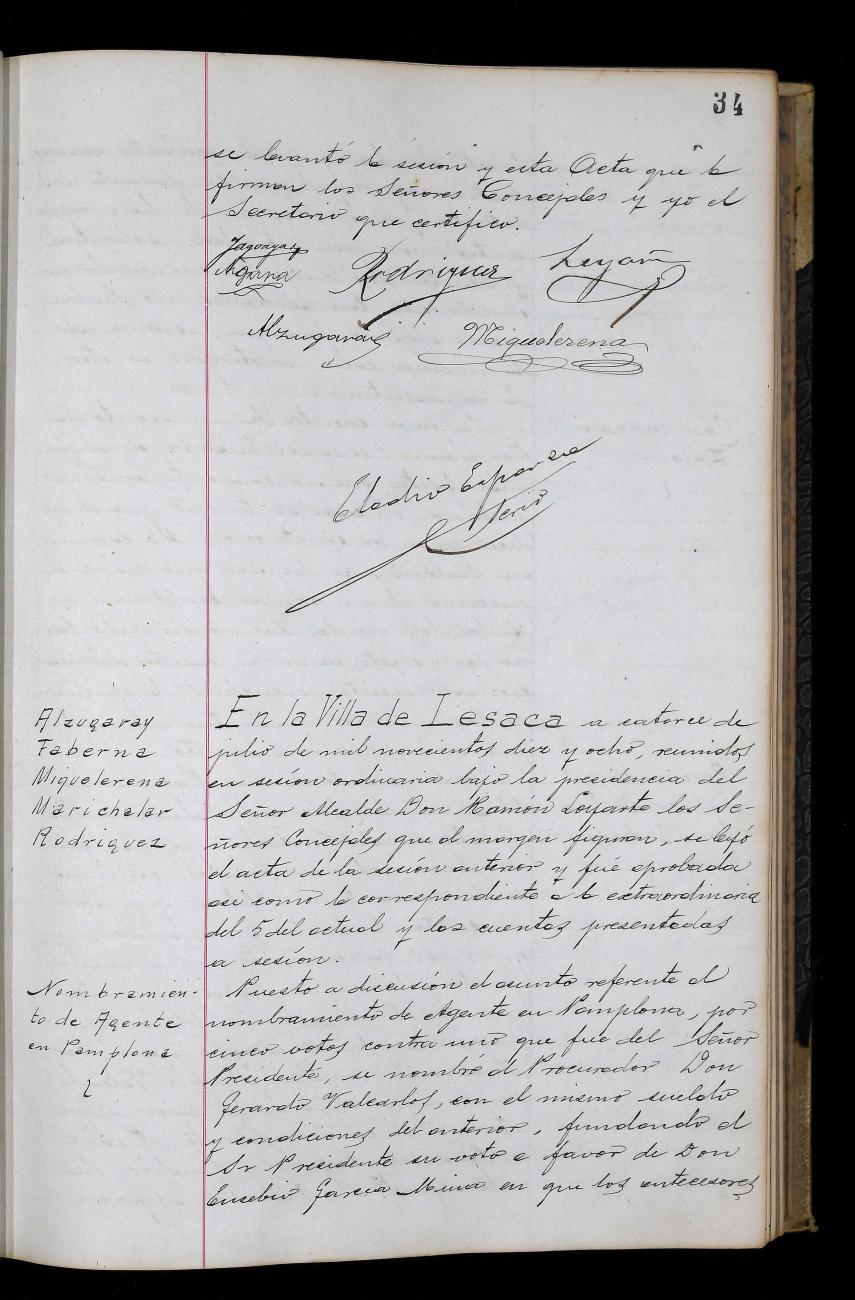 34
se levantó la sesión y esta Acta que la
firman los Señores Concejales y yo el
Secretario que certifico.
Rodriguez
Alzugaray
Miquelerena
Eladio Esparza
Srio
Alzugaray
Taberna
Miquelerena
Marichalar
Rodriguez
En la Villa de Lesaca a catorce de
julio de mil novecientos diez y ocho, reunidos
en sesión ordinaria bajo la presidencia del
Señor Alcalde Don Ramón Loyarte los Se-
ñores Concejales que al margen figuran, se leyó
el acta de la sesión anterior y fué aprobada
asi como la correspondiente a la extraordinaria
del 5 del actual y las cuentas presentadas
a sesión.
Nombramien-
to de Agente
en Pamplona
Puesto a discusión el asunto referente al
nombramiento de Agente en Pamplona, por
cinco votos contra uno que fué del Señor
Presidente, se nombró al Procurador Don
Gerardo Valcarlos, con el mismo sueldo
y condiciones del anterior, fundando el
Sr Presidente su voto a favor de Don
Eusebio Garcia Mina en que los antecesores